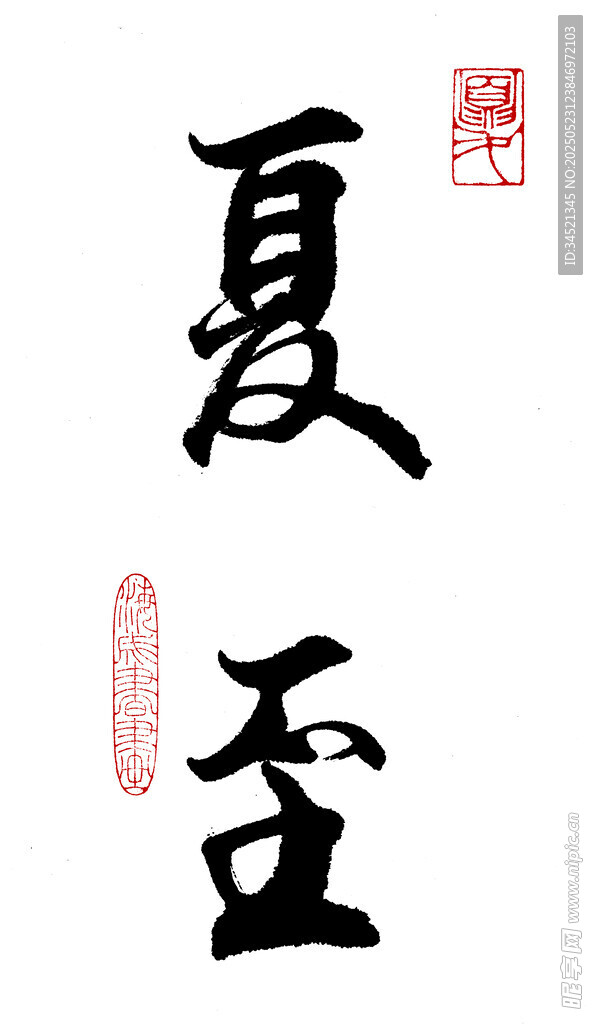 夏至
ID:34521345 NO:20250523123846972103
昵享网 www.nipic.cn